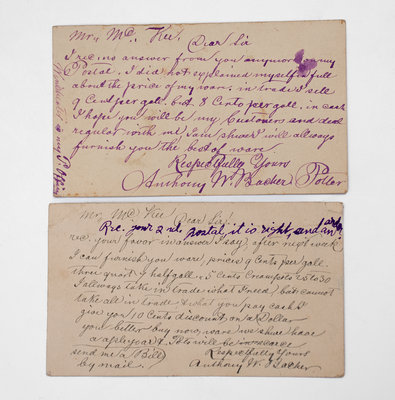 Mr, Mc, Kee Dear Sir
I recive answer from you anymore on my
Postal. I did not explained myself full
about the price of my ware. in trade I sell
9 Cent per gall. but 8 Cents per gall. in cash
I hope you will be my Customer and deal
regular with me, I am shure I will allways
furnish you the best of ware.
Respectfully Yours
Anthony W. Bacher Potter
my Office
Mr, Mc Kee Dear Sir!
Rec. your 2nd. postal, it is right, and an
rec. your favor in answer I say, after next week
I can furnish you ware, price 9 Cents per gall.
three quart & half gall. 5 Cents Croumpots 25 to 30
I allways take in trade what I need, but cannot
take all in trade & what you pay cash I
give you 10 Cents discount on a Dollar
you better buy now, ware we shure have
a apple year & Pots will be scarce
send me a Bill Respectfully Yours
by mail. Anthony W. Bacher